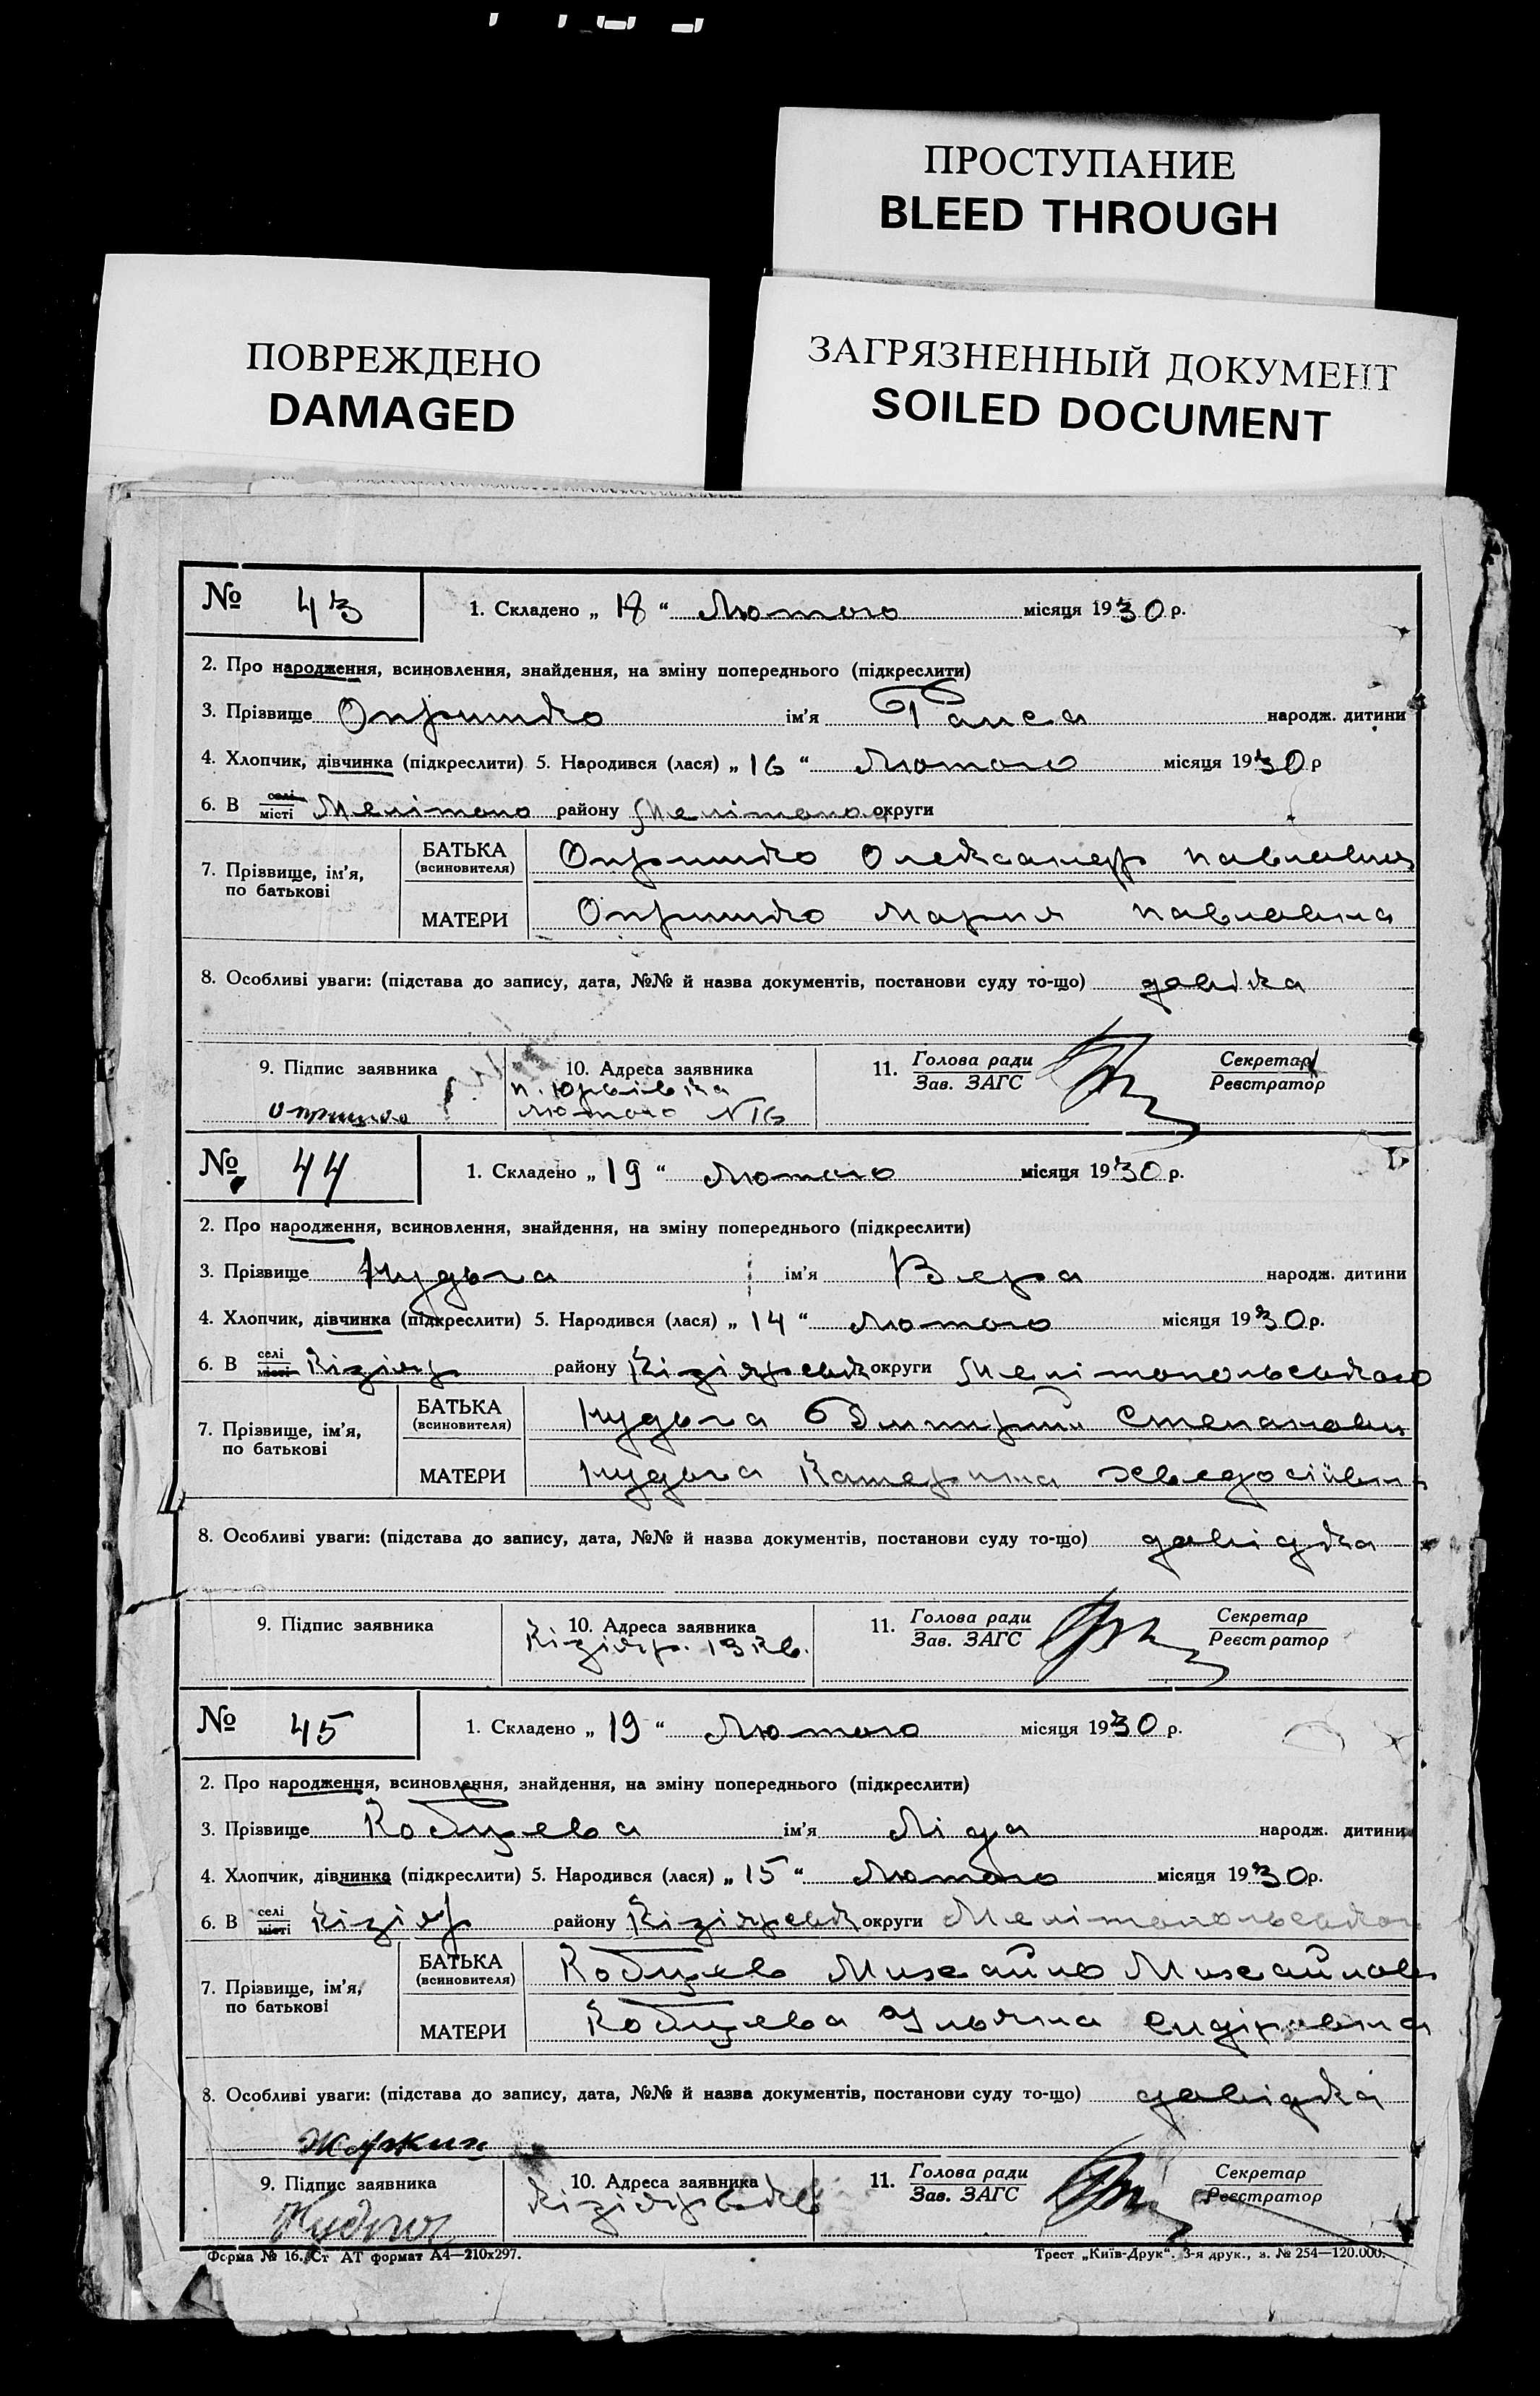 ПРОСТУПАНИЕ
BLEED THROUGH
ПОВРЕЖДЕНО
DAMAGED
ЗАГРЯЗНЕННЫЙ ДОКУМЕНТ
SOILED DOCUMENT
№ 43 1. Складено „ 18 “ Лютого місяця 1930 р.
2. Про народження, всиновлення, знайдення, на зміну попереднього (підкреслити)
3. Прізвище Опришко ім'я Раиса народж. дитини
4. Хлопчик, дівчинка (підкреслити) 5. Народився (лася) „ 16 “ Лютого місяця 1930 р
6. В селі місті Мелітопо району Мелітопол округи
7. Прізвище, ім'я, по батькові БАТЬКА (всиновителя) Опришко Олександр Павлович
МАТЕРИ Опришко Мария Павловна
8. Особливі уваги: (підстава до запису, дата, №№ й назва документів, постанови суду то-що) довідка
9. Підпис заявника 10. Адреса заявника 11. Голова ради Зав. ЗАГС Секретар Реєстратор
п. Юрьівка
Опришко Лютого № 16
№ 44 1. Складено „ 19 “ Лютого місяця 1930 р.
2. Про народження, всиновлення, знайдення, на зміну попереднього (підкреслити)
3. Прізвище Нудьга ім'я Вера народж. дитини
4. Хлопчик, дівчинка (підкреслити) 5. Народився (лася) „ 14 “ Лютого місяця 1930 р.
6. В селі місті Кізіяр району Кізіярськ округи Мелітопольського
7. Прізвище, ім'я, по батькові БАТЬКА (всиновителя) Нудьга Дмитрий Степанович
МАТЕРИ Нудьга Катерина
8. Особливі уваги: (підстава до запису, дата, №№ й назва документів, постанови суду то-що) довідка
9. Підпис заявника 10. Адреса заявника 11. Голова ради Зав. ЗАГС Секретар Реєстратор
Кізіяр. 13 кв.
№ 45 1. Складено „ 19 “ Лютого місяця 1930 р.
2. Про народження, всиновлення, знайдення, на зміну попереднього (підкреслити)
3. Прізвище Кобцева ім'я Ліда народж. дитини
4. Хлопчик, дівчинка (підкреслити) 5. Народився (лася) „ 15 “ Лютого місяця 1930 р.
6. В селі місті Кізіяр району Кізіярськ округи Мелітопольсько
7. Прізвище, ім'я, по батькові БАТЬКА (всиновителя) Кобцев Михайло Михайлов
МАТЕРИ Кобцева Ульяна
8. Особливі уваги: (підстава до запису, дата, №№ й назва документів, постанови суду то-що) довідка
9. Підпис заявника 10. Адреса заявника 11. Голова ради Зав. ЗАГС Секретар Реєстратор
Кізіяр
Форма № 16. Ст АТ формат А4—210х297. Трест „Київ-Друк“. 3-я друк., з. № 254—120.000.